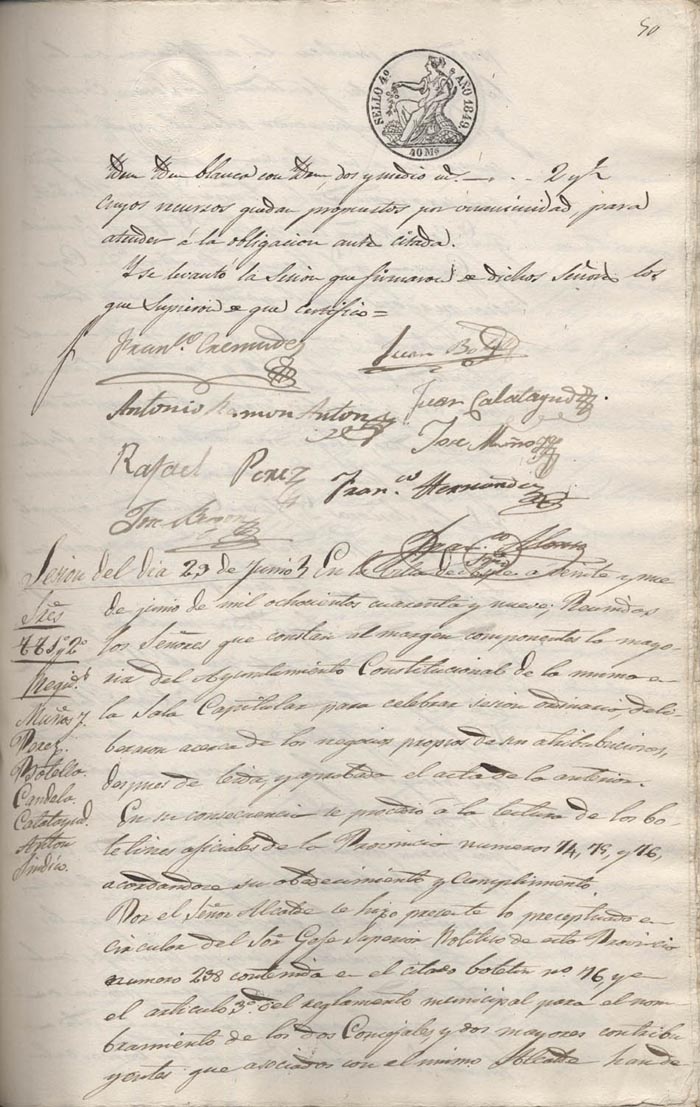 50
SELLO 4º AÑO 1849.
40 Ms
blanca con dos y medio 2 y
cuyos recursos quedan propuestos por unanimidad, para
atender á la obligacion ante citada.
Y se levantó la Sesion que firmaron de dichos Señores los
que supieron de que certifico=
Franco Cremades
Juan
Antonio Ramon Anton
Juan Calatayud
Rafael Perez
Jose Muñoz
Franco Hernandez
Jose
Sesion del dia 29 de Junio En la Villa de Aspe a veinte y nueve
de junio de mil ochocientos cuarenta y nueve; Reunidos
los Señores que constan al margen componentes la mayo-
ria del Ayuntamiento Constitucional de la misma en
la Sala Capitular para celebrar sesion ordinaria, deli-
beraron acerca de los negocios propios de sus atribuciones,
despues de leida, y aprobada el acta de la anterior.
Sres
TT 1º y 2º
Regids
Muñoz
Perez
Botella
Candela
Calatayud
Anton
Sindico
En su consecuencia se procedió a la lectura de los bo-
letines oficiales de la Provincia numeros 74, 75, y 76,
acordandose su obedecimiento y cumplimiento.
Por el Señor Alcalde se hizo presente lo preceptuado en
circular del Sor Gefe Superior Politico de esta Provincia
numero 238 contenida en el citado boletin nº 76, y en
el articulo 3º del reglamento municipal para el nom-
bramiento de los dos Concejales y dos mayores contribu
yentes que asociados con el mismo Alcalde han de